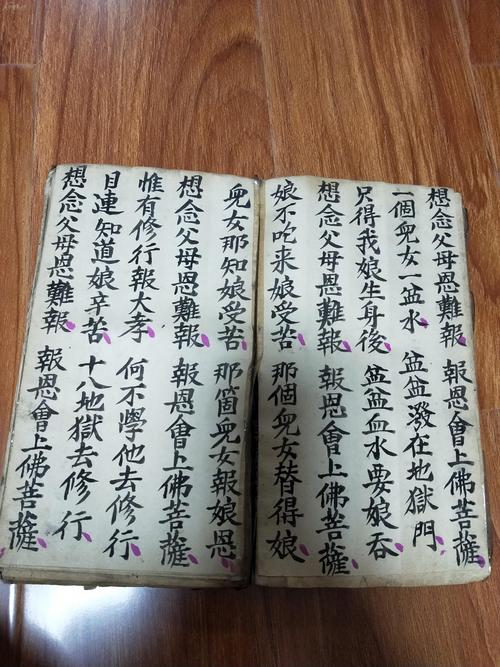 想念父母恩難報 報恩會上佛菩薩
一個兒女一盆水 盆盆潑在地獄門
只得我娘生身後 盆盆血水要娘吞
想念父母恩難報 報恩會上佛菩薩
娘不吃来娘受苦 那個兒女替得娘
兒女那知娘受苦 那箇兒女報娘恩
想念父母恩難報 報恩會上佛菩薩
惟有修行報大孝 何不學他去修行
目連知道娘辛苦 十八地獄去修行
想念父母恩難報 報恩會上佛菩薩